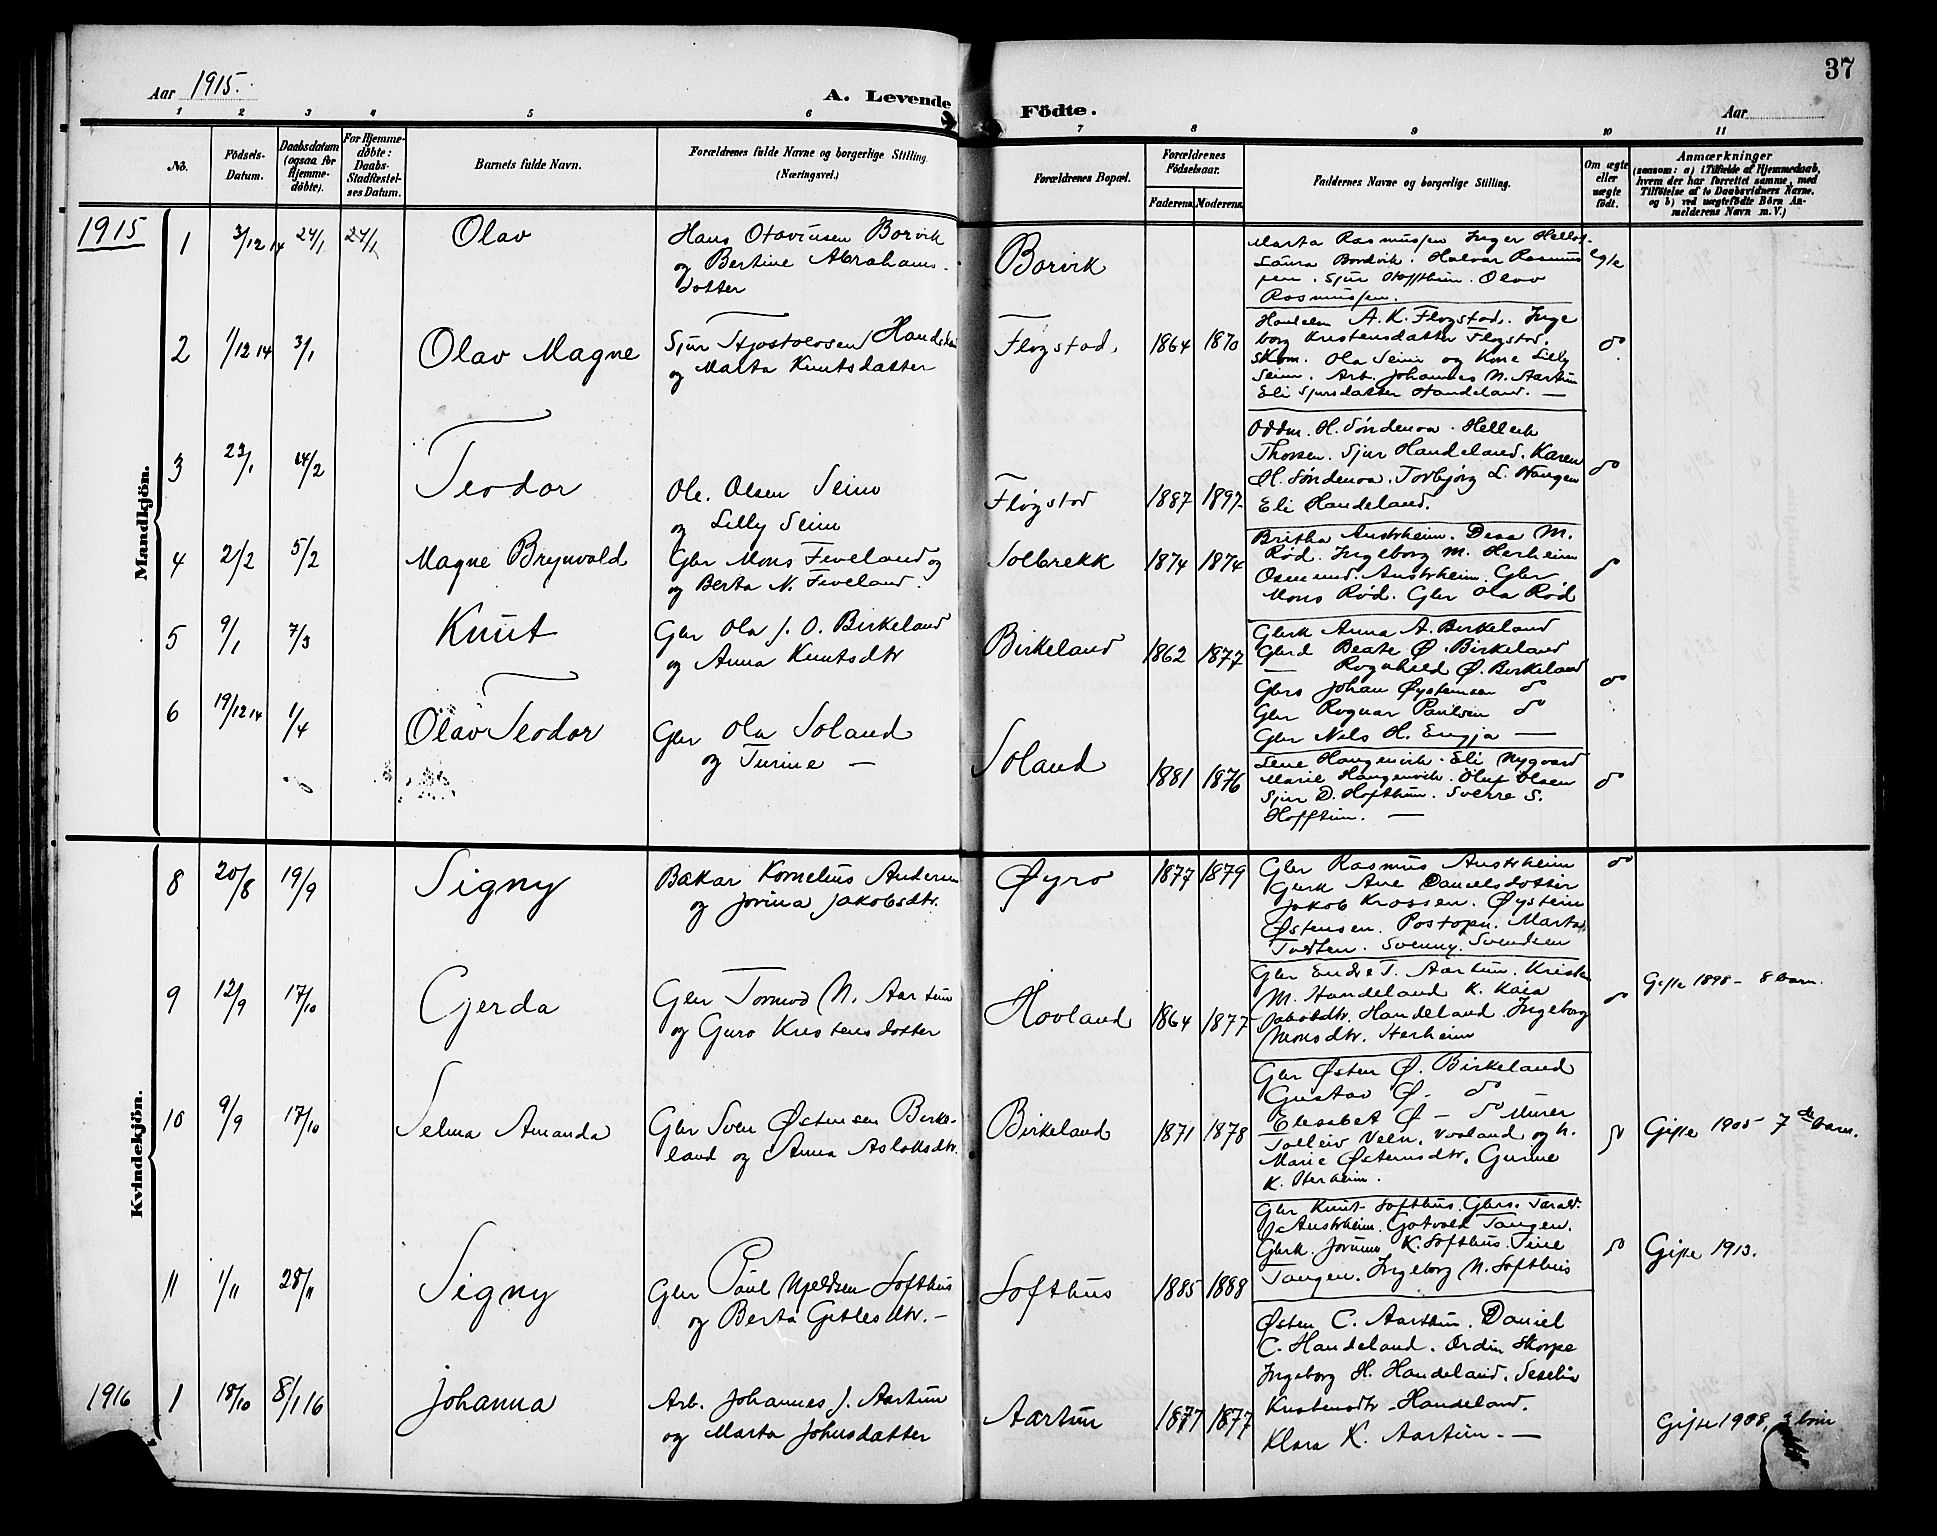 37
Aar 1915.
A. Levende Födte.
Aar
1 2 3 4 5 6 7 8 9 10 11
No.
Födsels-Datum.
Daabsdatum (ogsaa for Hjemme-döbte).
For Hjemme-döbte: Daabs-Stadfæstel-ses Datum.
Barnets fulde Navn.
Forældrenes fulde Navne og borgerlige Stilling. (Næringsvei.)
Forældrenes Bopæl.
Forældrenes Födselsaar.
Faderens. Moderens.
Faddernes Navne og borgerlige Stilling.
Om ægte eller uægte födt.
Anmærkninger
(saasom: a) i Tilfælde af Hjemmedaab,
hvem der har forrettet samme, med
Tilföielse af to Daabsvidners Navne.
og b) ved uægtefödte Börn An-
melderens Navn m. V.)
Mandkjön.
1915
1 3/12 14 24/1 24/1 Olav
Hans Otavinsen Borvik
og Bertine Abrahams-
dotter
Borvik
Marta Rasmussen Inger
Laura Bordvik. Halvar Rasmus
sen. Sjur Hoftthun. Olav
Rasmussen.
2 1/12 14 3/1 Olav Magne
Sjur
og Marta Knutsdatter
Fløgstad. 1864 1870
A. K. Fløgstad. Inge
borg Kristensdatter Fløgstad.
Skom. Ola Seim og Kone Lilly
Seim. Arb. Johannes N. Aartun
Eli Sjursdatter Handeland. —
3 23/1 14/2 Teodor
Ole Olsen Seim
og Lilly Seim
Fløgstad 1887 1897
H. Søndenaa.
Thorsen. Sjur Handeland. Karen
H. Søndenaa. Torbjørg L. Vangen
Eli Handeland.
4 2/2 5/2 Magne Brynvald
Gbr Mons Feveland og
og Berta N. Feveland.
Solbrekk 1874 1874
Britha Austrheim. Desa M.
Rød. Ingeborg M. Herheim
Osmund Austrheim. Gbr
Mons Rød. Gbr Ola Rød
5 9/1 7/3 Knut
Gbr Ola J. O. Birkeland
og Anna Knutsdtr
Birkeland 1862 1877
Gbrk Anna A. Birkeland
Gbrd Beate Ø. Birkeland
— Rognheld Ø. Birkeland
Gbrs Johan Øysteinsen do
Gbr Rognar Paulsen do
Gbr Nels H. Engja —
6 19/12 14 1/4 Olav Teodor
Gbr Ola Soland
og Turine —
Soland 1881 1876
Lene Haugenvik. Eli Nygaard
Marie Haugenvik. Oluf Olsen
Sjur D. Hofthun. Sverre S.
Hoffthun. —
Kvindekjön.
8 20/8 19/9 Signy
Bakar Kornelius Andersen
og Jorina Jakobsdtr.
Øyro 1877 1879
Gbr Rasmus Austrheim
Gbrk Ane Danielsdotter
Jakob Kroosen. Øystein
Østensen. Postopn. Marta
Tvedten. Svenny Svendsen
9 12/9 17/10 Gjerda
Gbr Tormod N. Aartun
og Guro Kristensdotter
Hovland 1864 1877
Gbr Endre T. Aartun.
M. Handeland K. Kaia
Jakobdtr. Handeland. Ingeborg
Monsdtr. Herheim
Gifte 1898 - 8 barn.
10 9/9 17/10 Selma Amanda
Gbr Sven Østensen Birke-
land og Anna Aslaksdtr.
Birkeland 1871 1878
Gbr Østen Ø. Birkeland
Gustav Ø. do
Elesabet Ø — do Murer
Marie Østensdtr. Gurine
K. Herheim.
Gifte 1905 7de barn.
11 1/11 28/11 Signy
Gbr Paul Njeldsen Softhus
og Berta Gitlesdtr. —
Softhus 1885 1888
Gbr Knut Softhus. Gbrs. Tarald
Austrheim. Gotvald Tangen.
Gbrk. Jorunn K. Softhus. Tine
Tangen. Ingeborg N. Softhus
Gifte 1913.
1916 1 18/10 8/1 16 Johanna
Arb. Johannes J. Aartun
og Marta Johnsdatter
Aartun 1877 1877
Østen C. Aarthun. Daniel
C. Handeland. Ordin Skorpe
Ingeborg H. Handeland. Seselia
Knutsendtr - Handeland.
Klara K. Aartun. —
Gifte 1908,